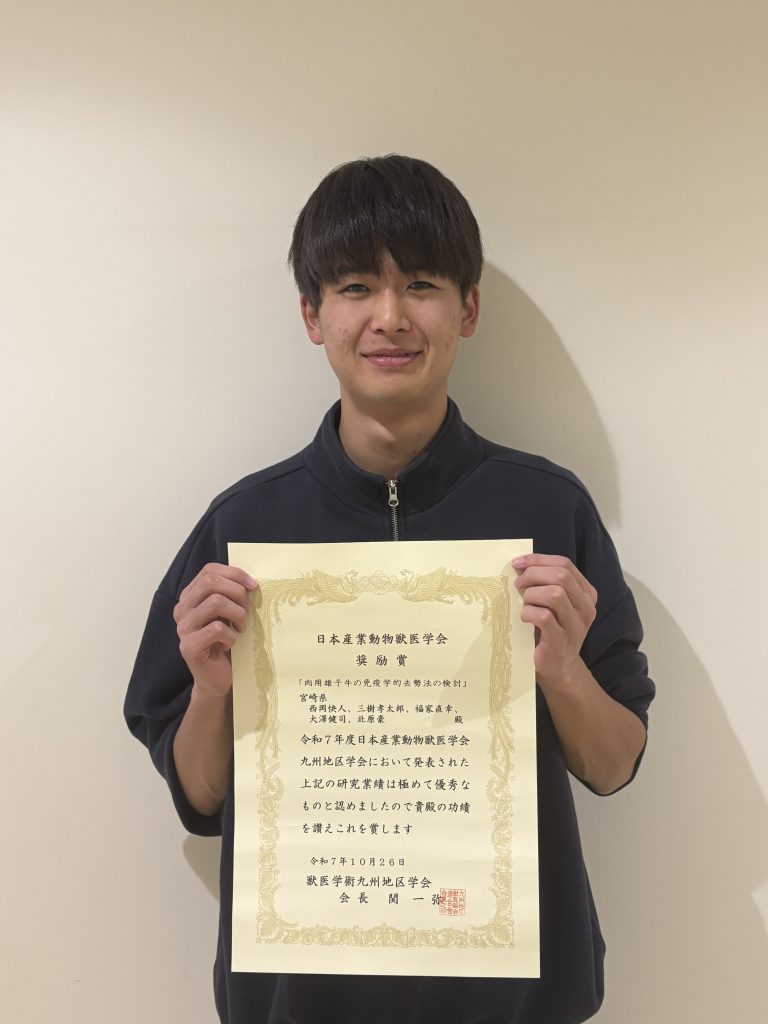 日本産業動物獣医学会
奨励賞
「肉用雄子牛の免疫学的去勢法の検討」
宮崎県
西岡快人、三樹孝太郎、福家直幸、
大澤健司、北原豪 殿
令和7年度日本産業動物獣医学会
九州地区学会において発表された
上記の研究業績は極めて優秀な
ものと認めましたので貴殿の功績
を讃えこれを賞します
令和7年10月26日
獣医学術九州地区学会
会長 関一弥